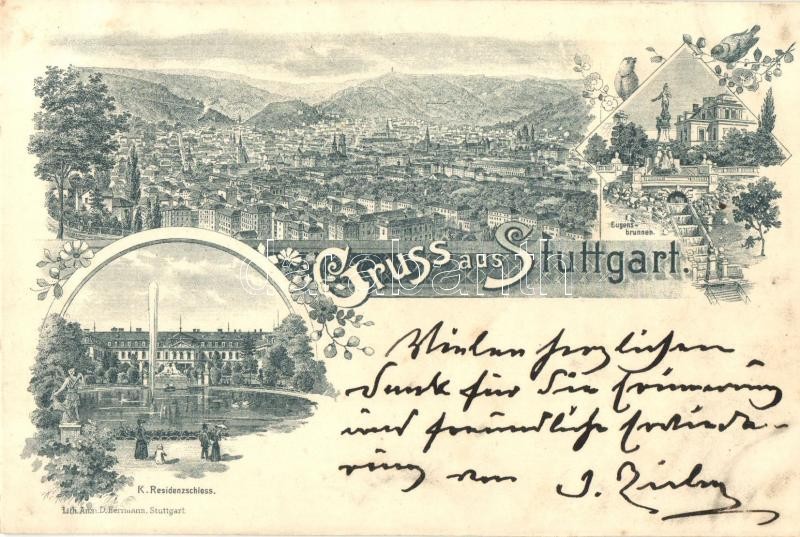 Eugens-
brunnen.
Gruss aus Stuttgart.
Vielen herzlichen
Dank für die Erinnerung
und freundliche Erwide-
rung von J.
K. Residenzschloss.
Lith. Anst. D. Herrmann, Stuttgart